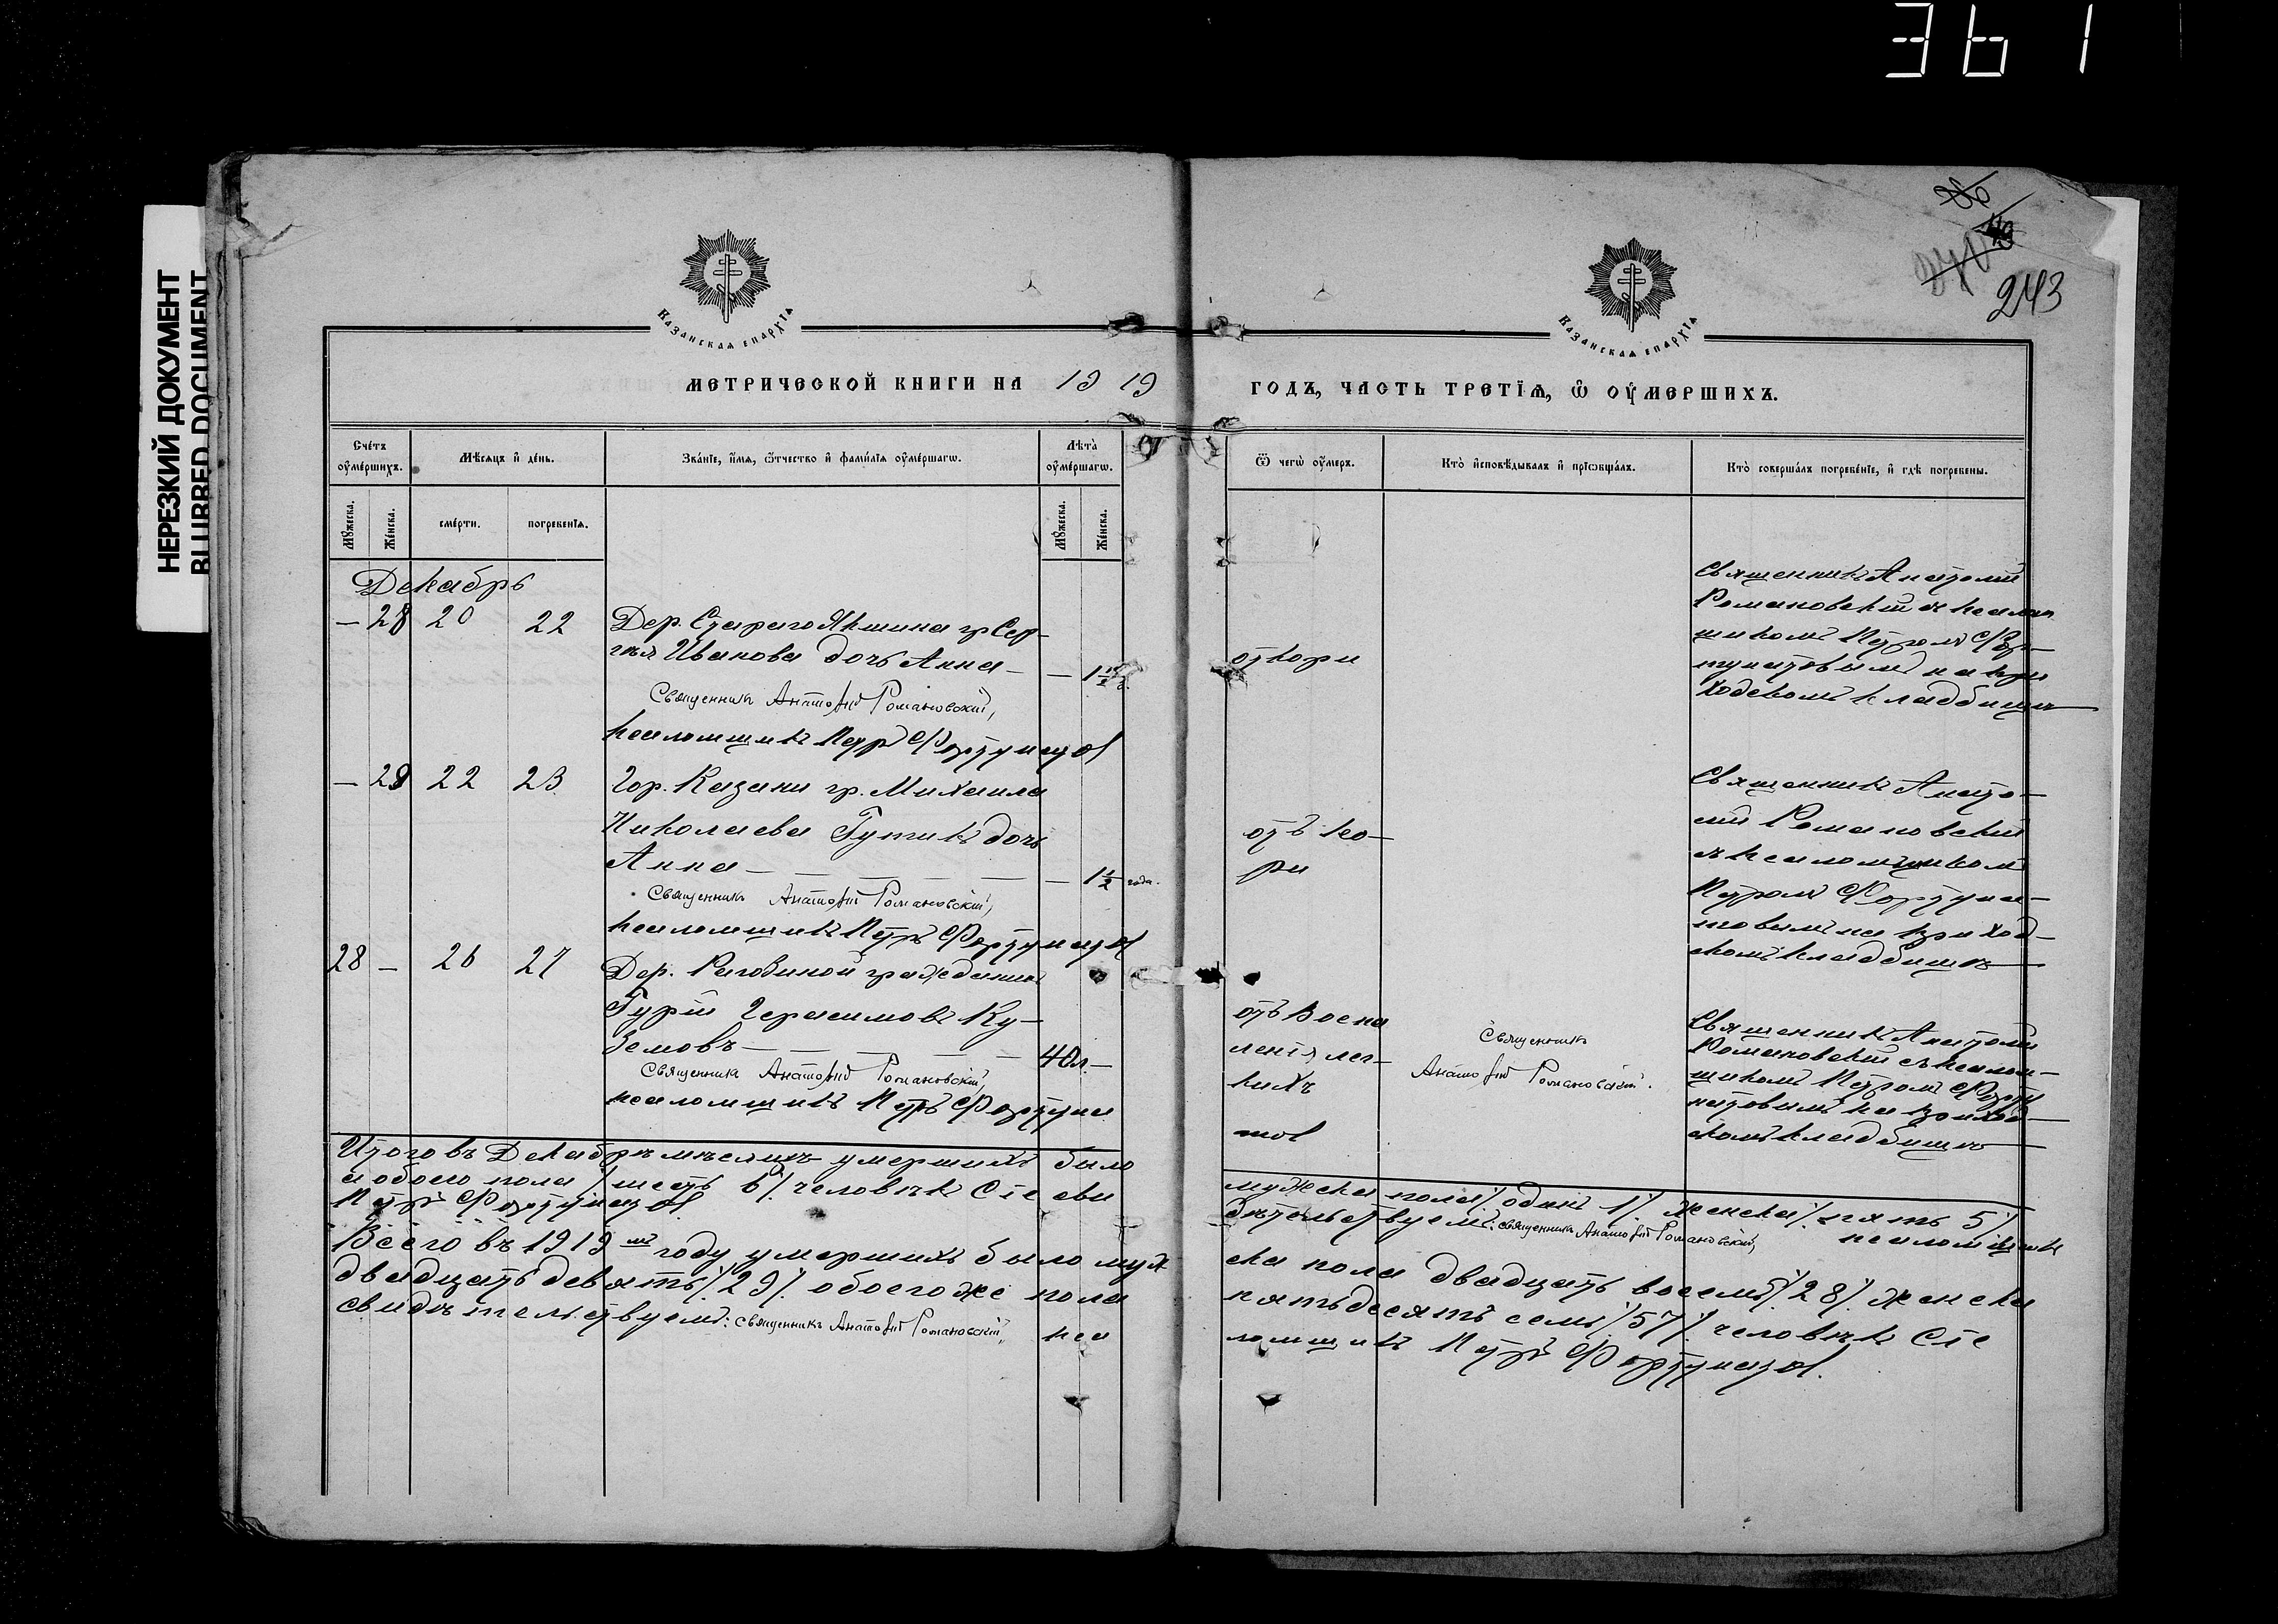 361
НЕРЕЗКИЙ ДОКУМЕНТ
BLURRED DOCUMENT
243
Казанская епархїѧ
Казанская епархїѧ
МЕТРИЧЕСКОЙ КНИГИ НА 1919
ГОДЪ, ЧАСТЬ ТРЕТЇѦ, Ѽ ОУМЕРШИХЪ.
Счетъ оумершихъ.
Мѣсяцъ и день.
Званїе, имѧ, ѿчество и фамилїѧ оумершагѡ.
Лѣта оумершагѡ.
Ѿ чегѡ оумеръ.
Кто исповѣдывалъ и прїѡбщалъ.
Кто совершалъ погребенїе, и гдѣ погребены.
Мужеска.
Женска.
смерти.
погребенїѧ.
Мужеска.
Женска.
Декабрь
— 28 20 22
Дер. Стараго Якшина гр Сер-
гѣя Иванова дочь Анна — — 1 1/2 г.
Священникъ Анатолій Романовскій,
псаломщикъ Петръ Фортунатов
от кори
Священникъ Анатолій
Романовскій съ псалом
щикомъ Петромъ Фор-
тунатовымъ на при
ходскомъ кладбищѣ
— 29 22 23
Гор. Казани гр. Михаила
Николаева Гутикъ дочь
Анна — — 1 1/2 года.
Священникъ Анатолій Романовскій,
псаломщикъ Петръ Фортунатов
отъ ко-
ри
Священникъ Анато-
лій Романовскій
съ псаломщикомъ
Петромъ Фортуна-
товымъ на приход-
скомъ кладбищѣ
28 — 26 27
Дер. Раговиной гражданинъ
Гурій Герасимовъ Ку-
земовъ — 40л. —
Священникъ Анатолій Романовскій,
псаломщикъ Петръ Фортуна
тов
отъ воспа
ленія лег-
кихъ
Священникъ
Анатолій Романовскій.
Священникъ Анатолій
Романовскій съ псалом-
щикомъ Петромъ Форту
натовымъ на приход-
скомъ кладбищѣ
Итого въ Декабрѣ мѣсяцѣ умершихъ было
мужска пола /. одинъ 1 /. женска /. пять 5 /.
а обоего пола /. шесть 6 /. человѣкъ Сіе сви
дѣтельствуемъ: священникъ Анатолій Романовскій, псаломщикъ
Петръ Фортунатов
Всего въ 1919 мъ году умершихъ было муж
ска пола двадцать восемь /. 28 /. женска
двадцать девять /. 29 /. обоего же пола
пятьдесятъ семь /. 57 /. человѣкъ Сіе
свидѣтельствуемъ: священникъ Анатолій Романовскій, пса
ломщикъ Петръ Фортунатов.